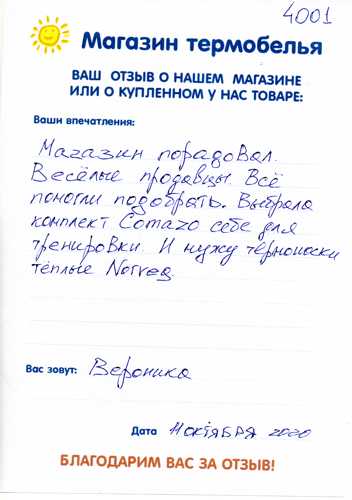 4001
Магазин термобелья
ВАШ ОТЗЫВ О НАШЕМ МАГАЗИНЕ
ИЛИ О КУПЛЕННОМ У НАС ТОВАРЕ:
Ваши впечатления:
Магазин порадовал.
Весёлые продавцы. Всё
помогли подобрать. Выбрала
комплект Comazo себе для
тренировки. И мужу термоноски
тёплые Norveg.
Вас зовут: Вероника
Дата 11 октября 2020
БЛАГОДАРИМ ВАС ЗА ОТЗЫВ!